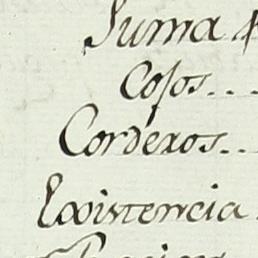 Suma
Cojos...
Corderos..
Existencia